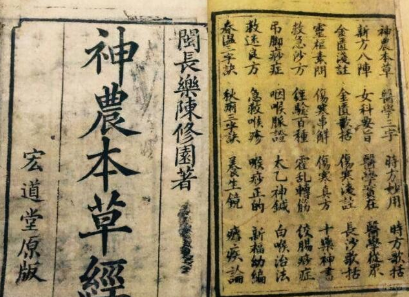 神農本草 醫學三字 時方妙用 時方歌括
金匱淺註 金匱歌括 傷寒淺註 長沙歌括
新方八陣 女科要旨 醫學實在 醫學從眾
靈樞素問 傷寒串解 傷寒真方 十藥神書
救急沙方 經驗百種 霍亂轉筋 絞腸痧症
吊腳痧症 咽喉脈證 太乙神鍼 白喉治法
救迷良方 急救喉疹 喉痧正的 福幼編
春溫三字訣 秋瘧三字訣 養生鏡 瘧疾論
閩長樂陳修園著
神農本草經
宏道堂原版